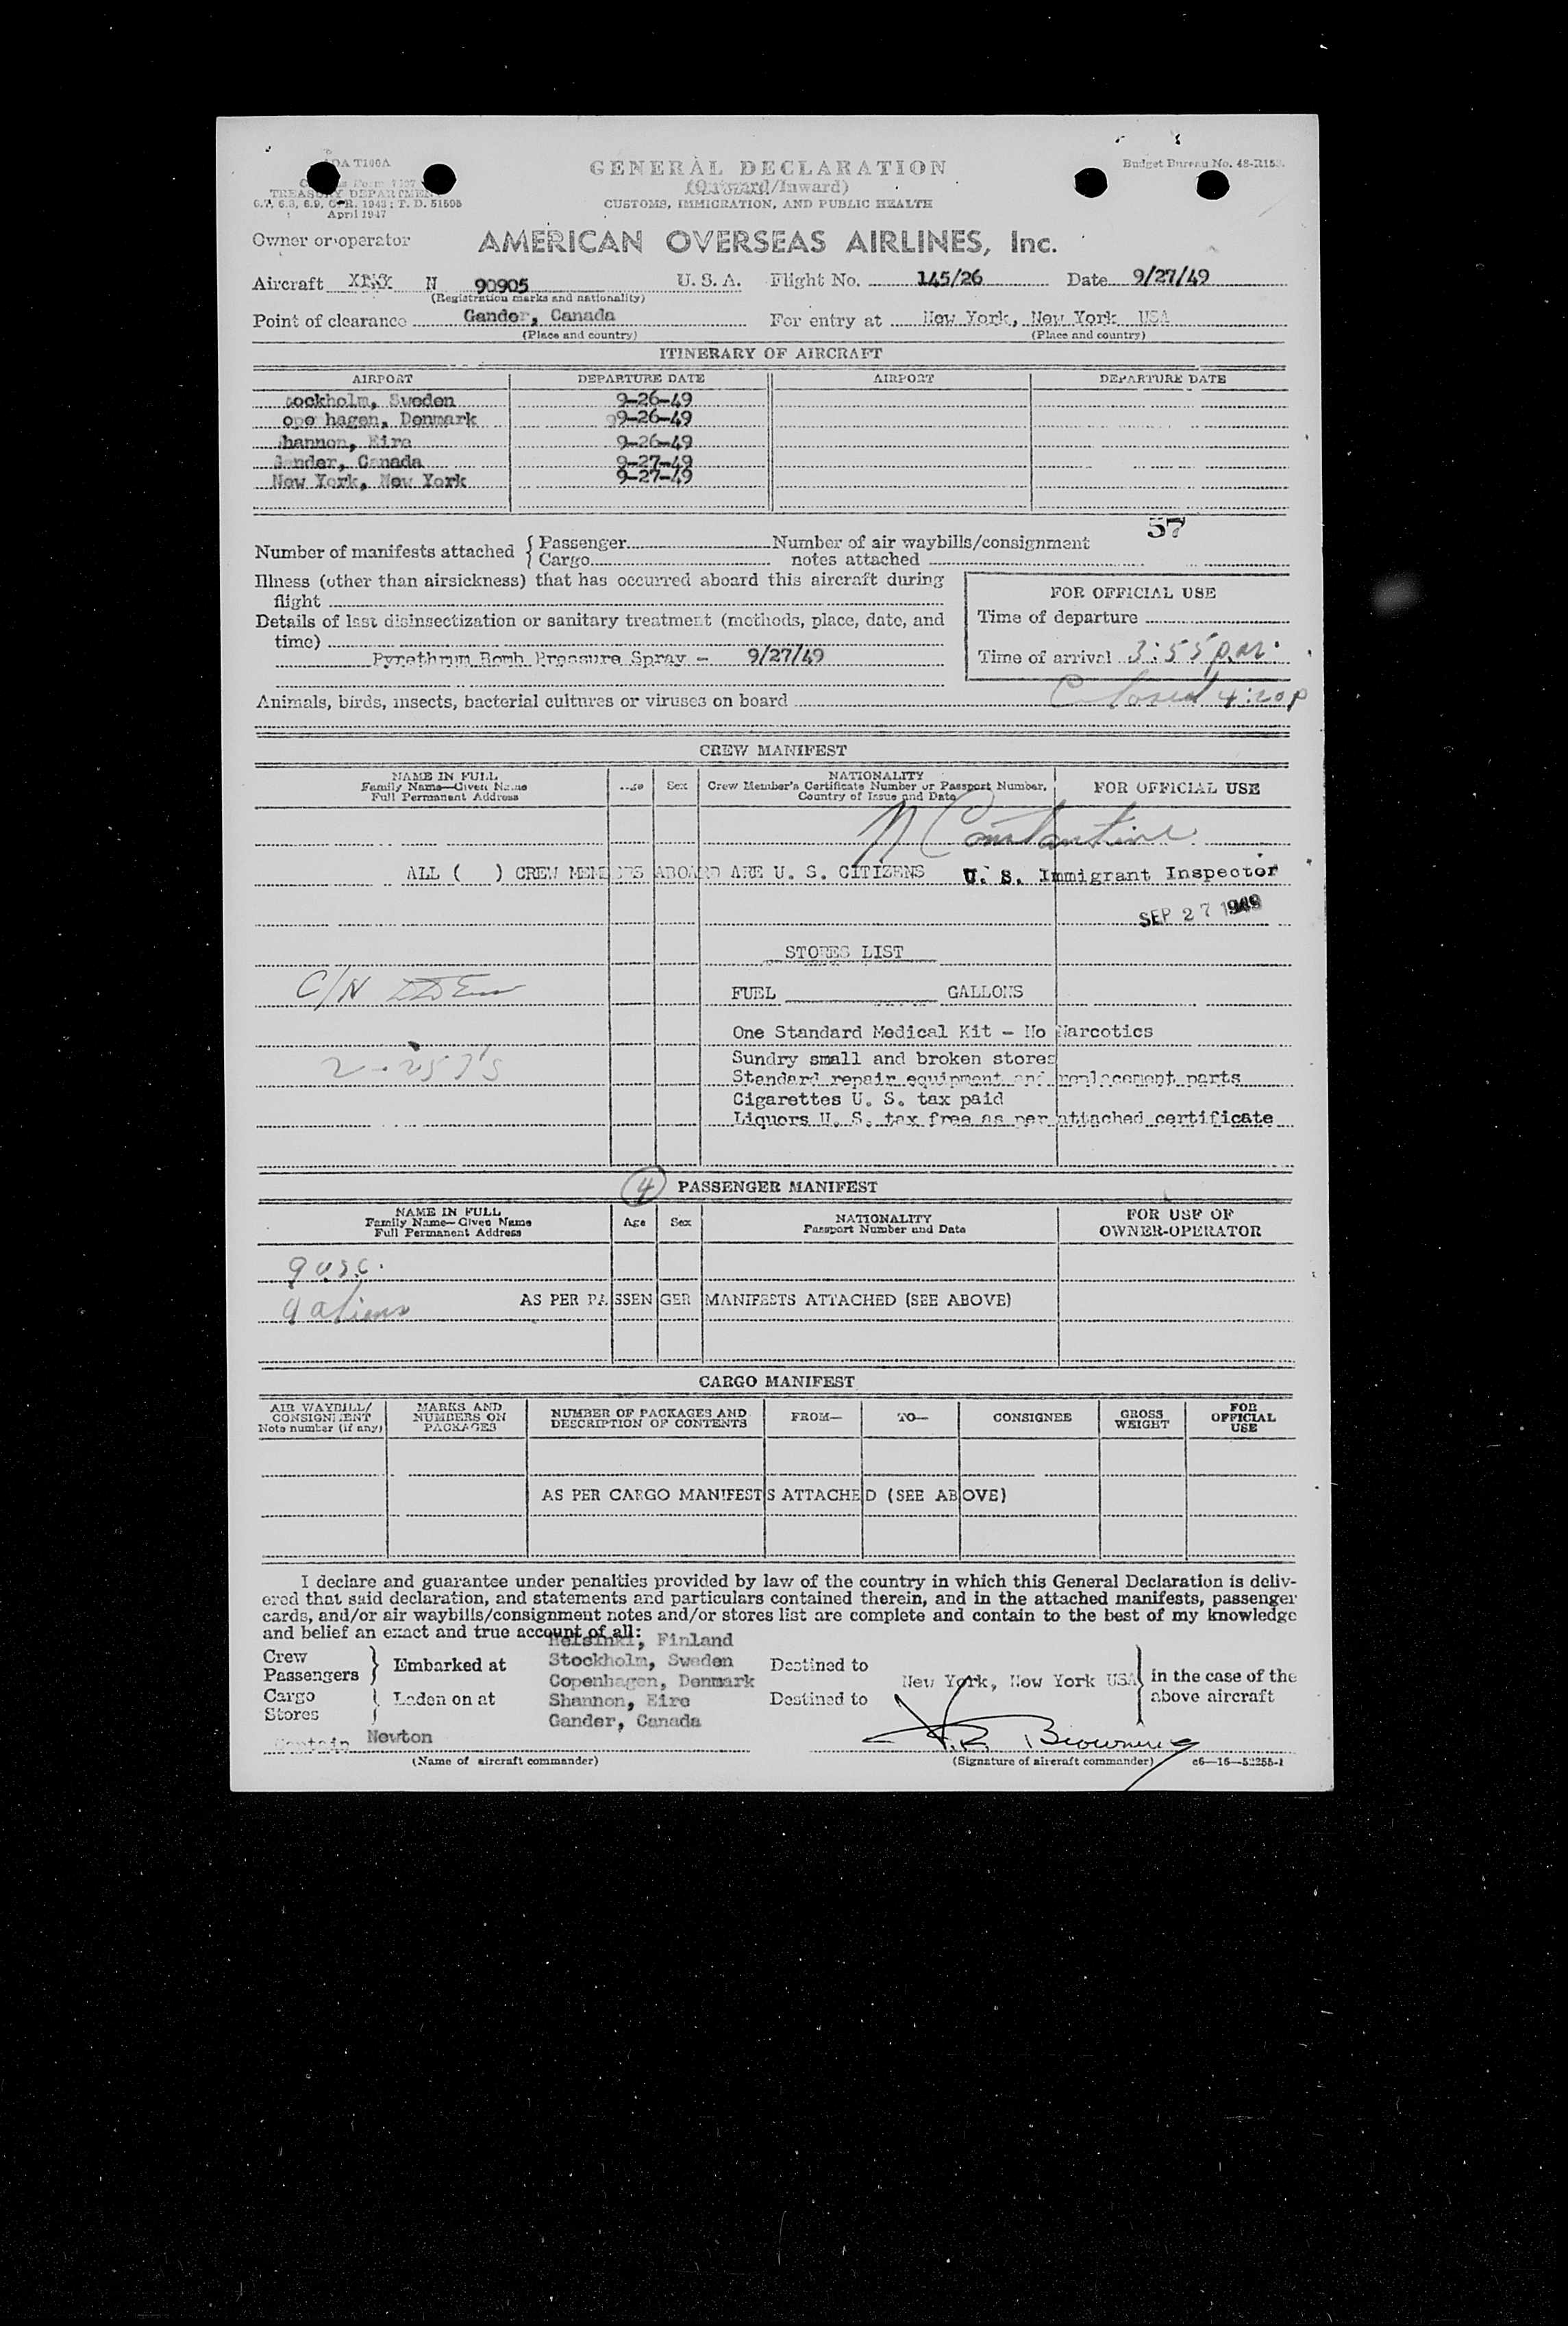 GENERAL DECLARATION
(Outward/Inward)
CUSTOMS, IMMIGRATION, AND PUBLIC HEALTH
Budget Bureau No. 48-R15
TREASURY DEPARTMENT
6.7, 6.8, 6.9, CFR. 1943; T. D. 51595
April 1947
Owner or operator AMERICAN OVERSEAS AIRLINES, Inc.
Aircraft N 90905 U. S. A. Flight No. 145/26 Date 9/27/49
(Registration marks and nationality)
Point of clearance Gander, Canada For entry at New York, New York USA
(Place and country) (Place and country)
ITINERARY OF AIRCRAFT
AIRPORT DEPARTURE DATE AIRPORT DEPARTURE DATE
tockholm, Sweden 9-26-49
ope hagen, Denmark 9-26-49
hannon, Eire 9-26-49
Gander, Canada 9-27-49
New York, New York 9-27-49
57
Number of manifests attached { Passenger Number of air waybills/consignment
Cargo notes attached
Illness (other than airsickness) that has occurred aboard this aircraft during
flight
FOR OFFICIAL USE
Details of last disinsectization or sanitary treatment (methods, place, date, and
time)
Time of departure
Pyrethrum Bomb Pressure Spray - 9/27/49
Time of arrival 3:55 p.m.
Closed 4:20p
Animals, birds, insects, bacterial cultures or viruses on board
CREW MANIFEST
NAME IN FULL
Family Name—Given Name
Full Permanent Address
Age Sex
NATIONALITY
Crew Member's Certificate Number or Passport Number,
Country of Issue and Date
FOR OFFICIAL USE
N Constantine
ALL ( ) CREW MEMBERS ABOARD ARE U. S. CITIZENS U. S. Immigrant Inspector
SEP 27 1949
STORES LIST
C/N
FUEL GALLONS
One Standard Medical Kit - No Narcotics
2-257's
Sundry small and broken stores
Standard repair equipment and replacement parts
Cigarettes U. S. tax paid
Liquors U. S. tax free as per attached certificate
4 PASSENGER MANIFEST
NAME IN FULL
Family Name—Given Name
Full Permanent Address
Age Sex
NATIONALITY
Passport Number and Date
FOR USE OF
OWNER-OPERATOR
9 usc.
9 aliens AS PER PASSENGER MANIFESTS ATTACHED (SEE ABOVE)
CARGO MANIFEST
AIR WAYBILL/
CONSIGNMENT
Note number (if any)
MARKS AND
NUMBERS ON
PACKAGES
NUMBER OF PACKAGES AND
DESCRIPTION OF CONTENTS
FROM— TO— CONSIGNEE
GROSS
WEIGHT
FOR
OFFICIAL
USE
AS PER CARGO MANIFESTS ATTACHED (SEE ABOVE)
I declare and guarantee under penalties provided by law of the country in which this General Declaration is deliv-
ered that said declaration, and statements and particulars contained therein, and in the attached manifests, passenger
cards, and/or air waybills/consignment notes and/or stores list are complete and contain to the best of my knowledge
and belief an exact and true account of all:
Helsinki, Finland
Crew
Passengers } Embarked at Stockholm, Sweden Destined to
Copenhagen, Denmark New York, New York USA in the case of the
Cargo
Stores } Laden on at Shannon, Eire Destined to above aircraft
Gander, Canada
Captain Newton H.R. Browning
(Name of aircraft commander) (Signature of aircraft commander) c6—16—52255-1